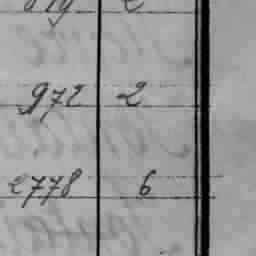 972 2
2778 6